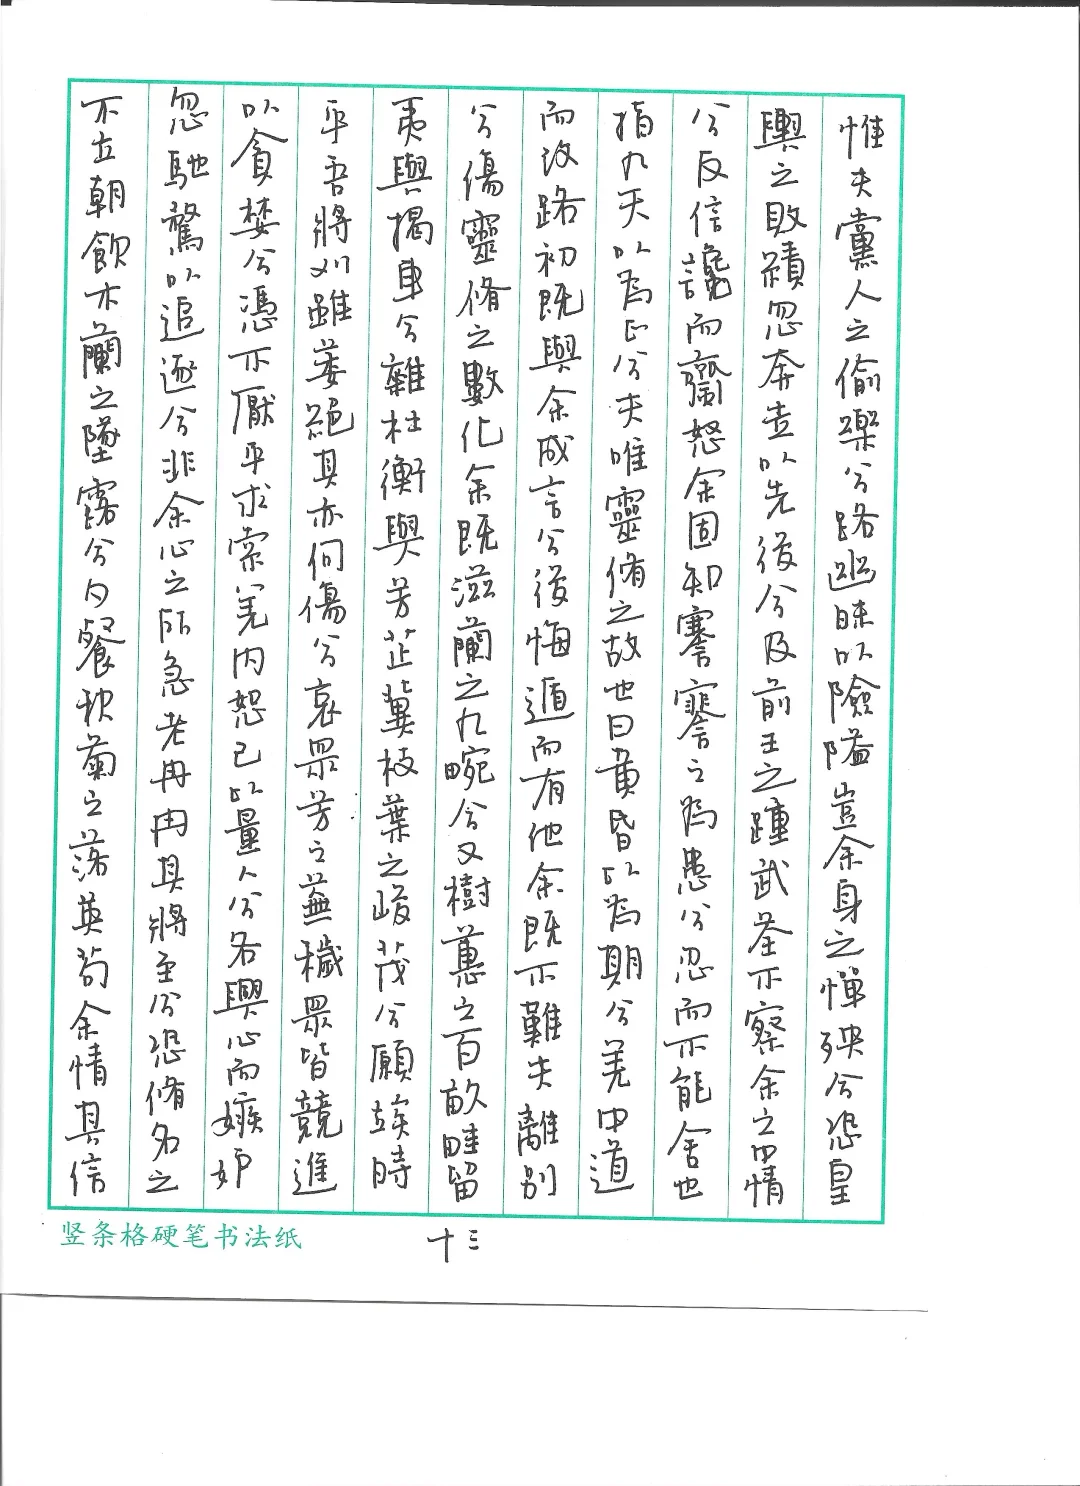 惟夫黨人之偷樂兮路幽昧以險隘豈余身之憚殃兮恐皇
輿之敗績忽奔走以先後兮及前王之踵武荃不察余之中情
兮反信讒而齌怒余固知謇謇之為患兮忍而不能舍也
指九天以為正兮夫唯靈脩之故也曰黄昏以為期兮羌中道
而改路初既與余成言兮後悔遁而有他余既不難夫離別
兮傷靈脩之數化余既滋蘭之九畹兮又樹蕙之百畝畦留
夷與揭車兮雜杜衡與芳芷冀枝葉之峻茂兮願竢時
乎吾將刈雖萎絕其亦何傷兮哀眾芳之蕪穢眾皆競進
以貪婪兮憑不厭乎求索羌内恕己以量人兮各興心而嫉妒
忽馳騖以追逐兮非余心之所急老冉冉其將至兮恐脩名之
不立朝飲木蘭之墜露兮夕餐秋菊之落英苟余情其信
竖条格硬笔书法纸
十三